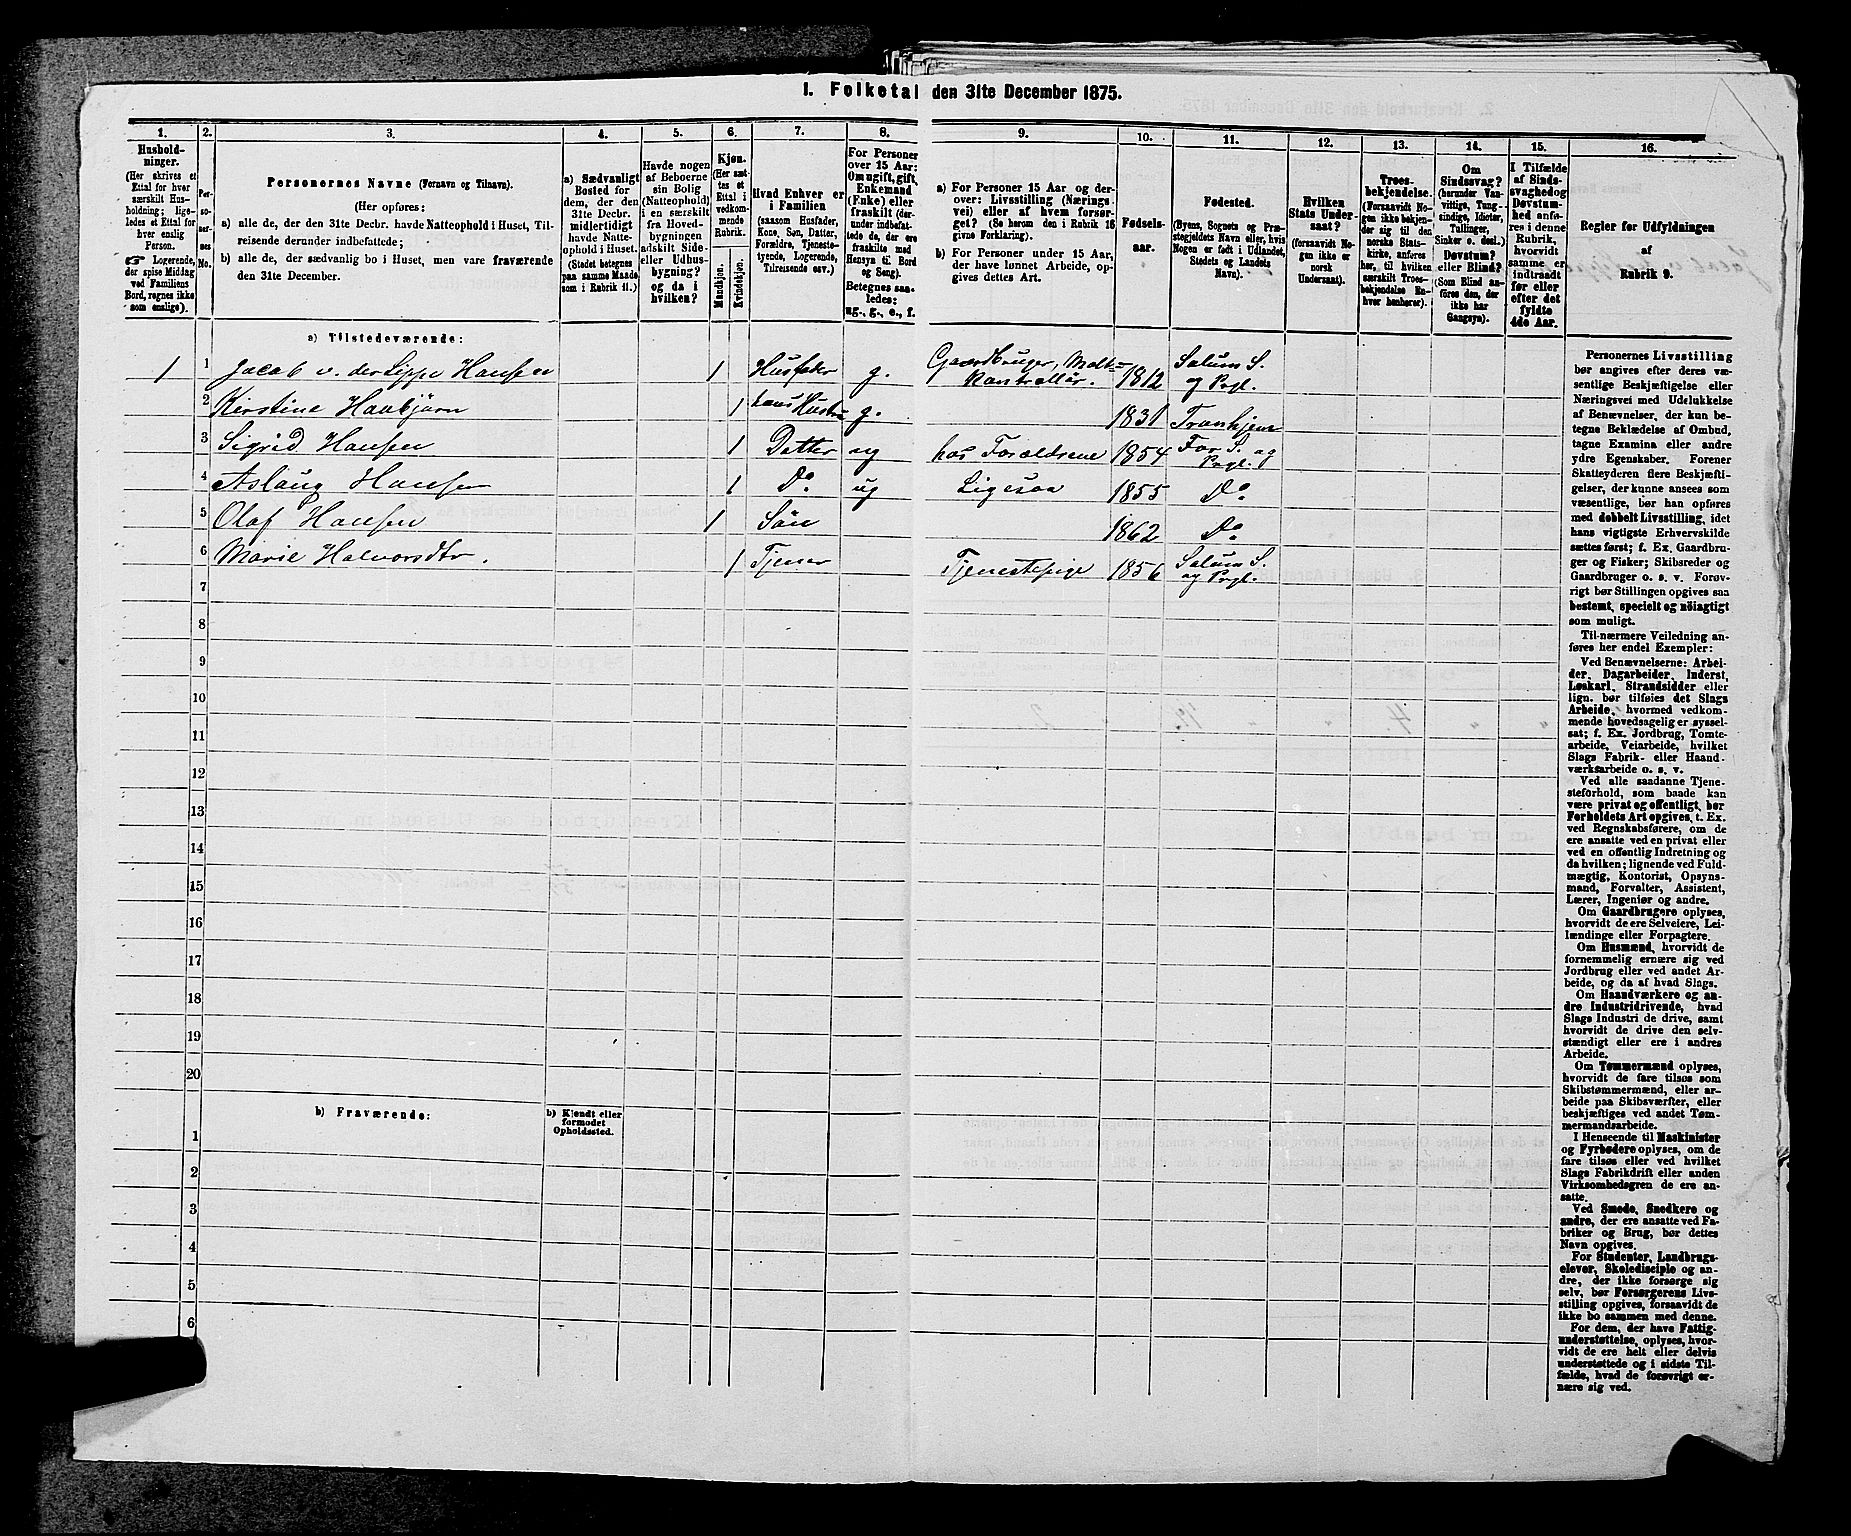 1. Folketal den 31te December 1875.
1. 2. 3. 4. 5. 6. 7. 8. 9. 10. 11. 12. 13. 14. 15. 16.
Hushold-
ninger.
(Her skrives et
Ettal for hver
særskilt Hus-
holdning; lige-
ledes et Ettal for
hver enslig
Person.
☞ Logerende,
der spise Middag
ved Familiens
Bord, regnes ikke
som enslige).
Per-
so-
ner-
nes
No.
Personernes Navne (Fornavn og Tilnavn).
(Her opføres:
a) alle de, der den 31te Decbr. havde Natteophold i Huset, Til-
reisende derunder indbefattede;
b) alle de, der sædvanlig bo i Huset, men vare fraværende
den 31te December.
a) Sædvanligt
Bosted for
dem, der den
31te Decbr.
midlertidigt
havde Natte-
ophold i Huset.
(Stedet betegnes
paa samme Maade
som i Rubrik 11.)
Havde nogen
af Beboerne
sin Bolig
(Natteophold)
i en særskilt
fra Hoved-
bygningen
adskilt Side-
eller Udhus-
bygning?
og da i
hvilken?
Kjøn.
(Her sæt-
tes et
Ettal i
vedkom-
mende
Rubrik.
Mandkjøn.
Kvindekjøn.
Hvad Enhver er
i Familien
(saasom Husfader,
Kone, Søn, Datter,
Forældre, Tjeneste-
tyende, Logerende,
Tilreisende osv.)
For Personer
over 15 Aar:
Om ugift, gift,
Enkemand
(Enke) eller
fraskilt (der-
under indbefat-
tede de, der ere
fraskilte med
Hensyn til Bord
og Seng).
Betegnes saa-
ledes:
ug., g., e., f.
a) For Personer 15 Aar og der-
over: Livsstilling (Nærings-
vei) eller af hvem forsør-
get? (Se herom den i Rubrik 16
givne Forklaring).
b) For Personer under 15 Aar,
der have lønnet Arbeide, op-
gives dettes Art.
Fødsels-
aar.
Fødested.
(Byens, Sognets og Præ-
stegjeldets Navn eller, hvis
Nogen er født i Udlandet,
Stedets og Landets
Navn).
Hvilken
Stats Under-
saat?
(forsaavidt No-
gen ikke er
norsk
Undersaat).
Troes-
bekjendelse.
(Forsaavidt No-
gen ikke bekjen-
der sig til den
norske Stats-
kirke, anføres
her, til hvilken
særskilt Troes-
bekjendelse En-
hver henhører).
Om
Sindssvag?
(herunder Van-
vittige, Tung-
sindige, Idioter,
Tullinger,
Sinker o. desl.)
Døvstum?
eller Blind?
(Som Blind an-
føres den, der
ikke har
Gangsyn).
I Tilfælde
af Sinds-
svaghed og
Døvstum-
hed anfø-
res i denne
Rubrik,
hvorvidt
samme er
indtraadt
før eller
efter det
fyldte
4de Aar.
Regler for Udfyldningen
af
Rubrik 9.
a) Tilstedeværende:
1 1 Jacob v. der Lippe Hansen 1 Husfader g. Gaardbruger, Malt-
kontrollør. 1812 Solum S.
og Prgl.
2 Kirstine Hanbjørn 1 hans Hustru g. 1831 Tronhjem
3 Sigrid Hansen 1 Datter ug hos Forældrene 1854 For S. og
Prgl.
4 Aslaug Hansen 1 Do. ug Ligesaa 1855 Do.
5 Olaf Hansen 1 Søn 1862 Do.
6 Marie Halvorsdtr. 1 Tjener Tjenestepige 1856 Solum S.
og Prgl.
7
8
9
10
11
12
13
14
15
16
17
18
19
20
b) Fraværende:
b) Kjendt eller
formodet
Opholdssted.
1
2
3
4
5
6
Personernes Livsstilling
bør angives efter deres væ-
sentlige Beskjæftigelse eller
Næringsvei med Udelukkelse
af Benævnelser, der kun be-
tegne Beklædelse af Ombud,
tagne Examina eller andre
ydre Egenskaber. Forener
Skatteyderen flere Beskjæfti-
gelser, der kunne ansees som
væsentlige, bør han opføres
med dobbelt Livsstilling, idet
hans vigtigste Erhvervskilde
sættes først; f. Ex. Gaardbru-
ger og Fisker; Skibsreder og
Gaardbruger o. s. v. Forøv-
rigt bør Stillingen opgives saa
bestemt, specielt og nöiagtigt
som muligt.
Til nærmere Veiledning an-
føres her endel Exempler:
Ved Benævnelserne: Arbei-
der, Dagarbeider, Inderst,
Løskarl, Strandsidder eller
lign. bør tilføies det Slags
Arbeide, hvormed vedkom-
mende hovedsagelig er syssel-
sat; f. Ex. Jordbrug, Tomte-
arbeide, Veiarbeide, hvilket
Slags Fabrik- eller Haand-
værksarbeide o. s. v.
Ved alle saadanne Tjene-
steforhold, som baade kan
være privat og offentligt, bør
Forholdets Art opgives, t. Ex.
ved Regnskabsførere, om de
ere ansatte ved en privat eller
ved en offentlig Indretning og
da hvilken; lignende ved Fuld-
mægtig, Kontorist, Opsyns-
mand, Forvalter, Assistent,
Lærer, Ingeniør og andre.
Om Gaardbrugere oplyses,
hvorvidt de ere Selveiere, Lei-
lændinge eller Forpagtere.
Om Husmænd, hvorvidt de
fornemmelig ernære sig ved
Jordbrug eller ved andet Ar-
beide, og da af hvad Slags.
Om Haandværkere og an-
dre Industridrivende, hvad
Slags Industri de drive, samt
hvorvidt de drive den selv-
stændigt eller ere i andres
Arbeide.
Om Tømmermænd oplyses,
hvorvidt de fare tilsøs som
Skibstømmermænd, eller ar-
beide paa Skibsværfter, eller
beskjæftiges ved andet Tøm-
mermandsarbeide.
I Henseende til Maskinister
og Fyrbødere oplyses, om de
fare tilsøs eller ved hvilket
Slags Fabrikdrift eller anden
Virksomhedsgren de ere an-
satte.
Ved Smede, Snedkere og
andre, der ere ansatte ved Fa-
briker og Brug, bør dettes
Navn opgives.
For Studenter, Landbrugs-
elever, Skoledisciple og an-
dre, der ikke forsørge sig
selv, bør Forsørgerens Livs-
stilling opgives, forsaavidt de
ikke bo sammen med denne.
For dem, der have Fattig-
understøttelse, oplyses, hvor-
vidt de ere helt eller delvis
understøttede og i sidste Til-
fælde, hvad de forøvrigt er-
nære sig ved.